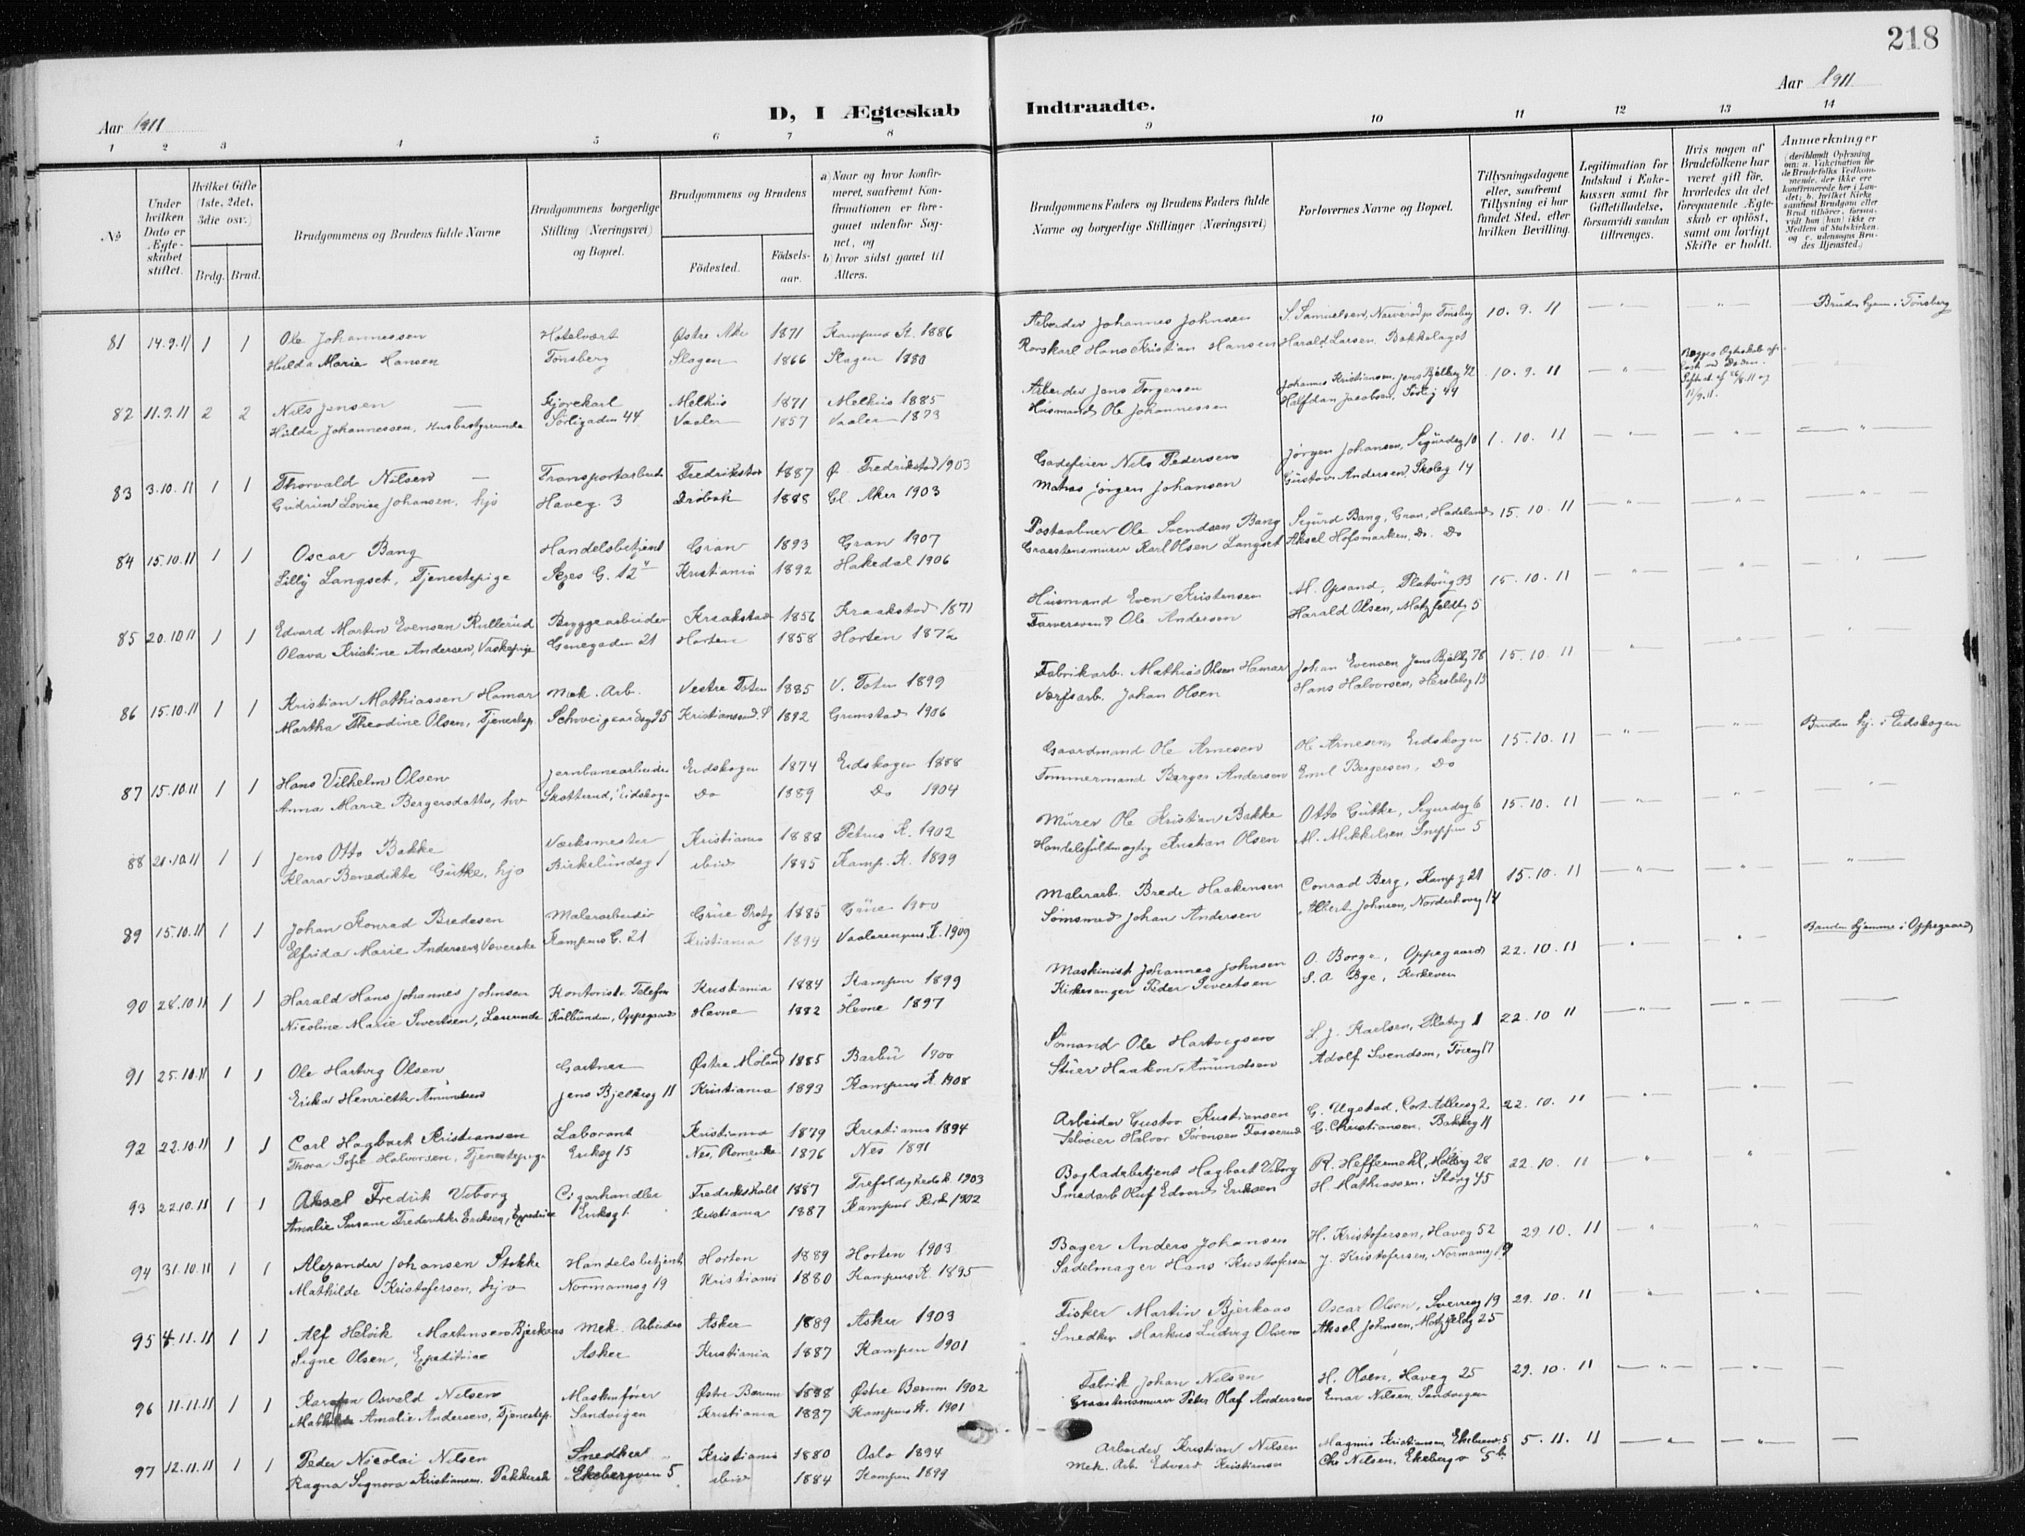 218
Aar 1911
D, I Ægteskab Indtraadte.
Aar 1911
1 2 3 4 5 6 7 8 9 10 11 12 13 14
No
Under hvilken Dato er Ægteskabet stiftet.
Hvilket Gifte (1ste, 2det, 3die osv.)
Brdg. Brud.
Brudgommens og Brudens fulde Navne
Brudgommens borgerlige Stilling (Næringsvei) og Bopæl.
Brudgommens og Brudens
Födested. Födselsaar.
a) Naar og hvor konfirmeret, saafremt Konfirmationen er foregaaet udenfor Sognet, og
b) hvor sidst gaaet til Alters.
Brudgommens Faders og Brudens Faders fulde Navne og borgerlige Stillinger (Næringsvei)
Forlovernes Navne og Bopæl.
Tillysningsdagene eller, saafremt Tillysning ei har fundet Sted, efter hvilken Bevilling.
Legitimation for Indskud i Enkekassen samt for Giftetilladelse, forsaavidt saadan tiltrænges.
Hvis nogen af Brudefolkene har været gift för, hvorledes da det foregaaende Ægteskab er oplöst, samt om lovligt Skifte er holdt.
Anmerkninger
81 14.9.11 1 1 Ole Johannessen Hotelvært Østre Aker 1871 Kampens K. 1886 Arbeider Johannes Johnsen S. Samuelsen, Tønsberg 10.9.11 Bruden hjem. i Tønsberg
Hulda Marie Hansen Tønsberg Slagen 1866 Slagen 1880 Hans Kristian Hansen Harald Larsen, Bakkelaget
82 11.9.11 2 2 Nils Jensen Kjørekarl Melhus 1871 Melhus 1885 Arbeider Jens Torgersen Johannes Kristiansen, Jens Bjelkeg 42 10.9.11
Hulda Johannessen, Husbestyrerinde Sörligaden 44 Vaaler 1857 Vaaler 1873 Husmand Ole Johannessen Halfdan Jacobsen, Sörlig 44
83 3.10.11 1 1 Thorvald Nilsen Transportarbeid Fredrikstad 1887 Ø. Fredrikstad 1903 Gadefeier Nils Pedersen Jørgen Johansen, Sigurdsg 10 1.10.11
Gudrun Lovise Johansen, hjo Haveg. 3 Drøbak 1888 Gl. Aker 1903 Matros Jörgen Johansen Gustav Andersen, Skoleg 14
84 15.10.11 1 1 Oscar Bang Handelsbetjent Gran 1893 Gran 1907 Postaabner Ole Svendsen Bang Sigurd Bang, Gran, Hadeland 15.10.11
Lilly Langset, Tjenestepige Skjes G. 12 Kristiania 1892 Hakedal 1906 Graastensmurer Karl Olsen Langset Aksel Hofsmarken, Do. Do
85 20.10.11 1 1 Edvard Martin Evensen Rullerud Byggearbeider Kraakstad 1856 Kraakstad 1871 Husmand Even Kristensen M. Opsand, Platoug 33 15.10.11
Olava Kristine Andersen, Vaskepige Grønegaden 21 Horten 1858 Horten 1872 Farversvend Ole Andersen Harald Olsen, Motzfeldtg 5
86 15.10.11 1 1 Kristian Mathiassen Hamar Mek. Arb. Vestre Toten 1885 V. Toten 1899 Fabrikarb. Mathias Olsen Hamar Johan Evensen, Jens Bjelkeg 78 15.10.11
Martha Theodine Olsen, Tjenestep. Schweigaardsg 95 Kristianssand S 1892 Grimstad 1906 Værfsarb. Johan Olsen Hans Halvorsen, Herslebg 13
87 15.10.11 1 1 Hans Vilhelm Olsen Jernbanearbeider Eidskogen 1874 Eidskogen 1888 Gaardmand Ole Arnesen Ole Arnesen, Eidskogen 15.10.11 Bruden hj. i Eidskogen
Anna Marie Bergersdatter, hv Skotterud, Eidskogn Do 1889 Do 1904 Tömmermand Berger Andersen Emil Bergersen, Do
88 21.10.11 1 1 Jens Otto Bakke Verksmester Kristiania 1888 Petrus K. 1902 Murer Ole Kristian Bakke Otto Gütke, Sigurdsg 6 15.10.11
Klara Benedikte Gütke, hjo Birkelundsg 1 ibid 1885 Kamp. K. 1899 Handelsfuldmægtig Kristian Olsen M. Mikkelsen, Snippen 5
89 15.10.11 1 1 Johan Konrad Bredesen Malerarbeider Grue Prstg 1885 Grue 1900 Malerarb. Brede Haakensen Conrad Berg, Kampg 21 15.10.11
Elfrida Marie Andersen, Væverske Kampens G. 21 Kristiania 1894 Vaalerengens K. 1909 Johan Andersen Albert Johnsen, Norderhovg 14
90 28.10.11 1 1 Harald Hans Johannes Johnsen Kontorist v. Telefon Kristiania 1884 Kampen 1899 Maskinist Johannes Johnsen O. Borge, Oppegaard 22.10.11 Bruden hjemme i Oppegaard
Nicoline Marie Sivertsen, Lærerinde Kolbunden, Oppegaard Hevne 1882 Hevne 1897 Kirkesanger Peder Sivertsen S. A. Bye, Kirkeveien
91 25.10.11 1 1 Ole Hartvig Olsen Gartner Østre Moland 1885 Barbu 1900 Sömand Ole Hartvigsen L. J. Karlsen, Platog 1 22.10.11
Erika Henriette Amundsen Jens Bjelkesg 11 Kristiania 1893 Kampens K. 1908 Stuer Haakon Amundsen Adolf Svendsen, Töieng 17
92 22.10.11 1 1 Carl Hagbart Kristiansen Laborant Kristiania 1879 Kristiania 1894 Arbeider Gustav Kristiansen G. Ugstad, Cort Adlersg 2 22.10.11
Thora Sofie Halvorsen, Tjenestepige Eriksg 15 Nes, Romerike 1876 Nes 1891 Selveier Halvor Sörensen Fosserud G. Christiansen, Bakkeg 11
93 22.10.11 1 1 Aksel Fredrik Viborg Cigarhandler Fredrikshald 1887 Trefoldighedsk 1903 Bogladebetjent Hagbart Viborg R. Heffermehl, 28 22.10.11
Amalie Susane Frederikke Eriksen, Expeditrice Eriksg 1 Kristiania 1887 Kampens Kirk 1902 Smedarb Oluf Edvard Eriksen H. Mathiassen, Storg 45
94 31.10.11 1 1 Alexander Johansen Stokke Handelsbetjent Horten 1889 Horten 1903 Bager Anders Johansen H. Kristofersen, Haveg 52 29.10.11
Mathilde Kristofersen, hjo Normannsg 19 Kristiania 1880 Kampens K. 1895 Sadelmager Hans Kristofersen J. Kristofersen, Normannsg 19
95 4.11.11 1 1 Alf Helvik Martinsen Bjerkaas Mek. Arbeider Asker 1889 Asker 1903 Fisker Martin Bjerkaas Oscar Olsen, Sverresg 19 29.10.11
Signe Olsen, Expeditrice Asker Kristiania 1887 Kampen 1901 Snedker Markus Ludvig Olsen Aksel Johnsen, Motzfeldtg 25
96 11.11.11 1 1 Osvald Nilsen Maskinfører Østre Bærum 1888 Østre Bærum 1902 Fabrik Johan Nilsen H. Olsen, Haveg 25 29.10.11
Mathilde Amalie Andersen, Tjenestep. Sandvigen Kristiania 1887 Kampens K. 1901 Graastensmurer Peter Olaf Andersen Einar Nilsen, Sandvigen
97 12.11.11 1 1 Peder Nicolai Nilsen Snedker Kristiania 1880 Oslo 1894 Arbeider Kristian Nilsen Magnus Kristiansen, Ekebergv 5 5.11.11
Ragna Signora Kristiansen, Pakkerske Ekebergveien 5 ibid 1884 Kampen 1899 Mek. Arb. Edvard Kristiansen Chr Nilsen, Ekebergv 5b